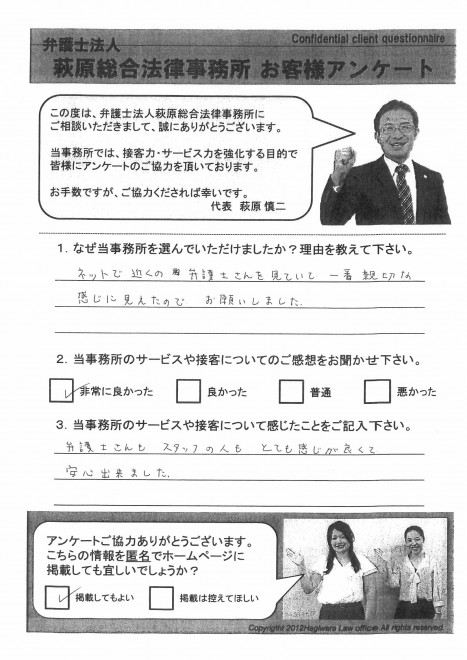 Confidential client questionnaire
弁護士法人
萩原総合法律事務所 お客様アンケート
この度は、弁護士法人萩原総合法律事務所に
ご相談いただきまして、誠にありがとうございます。
当事務所では、接客力・サービス力を強化する目的で
皆様にアンケートのご協力を頂いております。
お手数ですが、ご協力くだされば幸いです。
代表 萩原 慎二
1. なぜ当事務所を選んでいただけましたか？理由を教えて下さい。
ネットで 近くの 弁護士さんを見ていて 一番 親切な
感じに見えたので お願いしました.
2. 当事務所のサービスや接客についてのご感想をお聞かせ下さい。
非常に良かった 良かった 普通 悪かった
3. 当事務所のサービスや接客について感じたことをご記入下さい。
弁護士さんも スタッフの人も とても感じが良くて
安心出来ました.
アンケートご協力ありがとうございます。
こちらの情報を匿名でホームページに
掲載しても宜しいでしょうか？
掲載してもよい 掲載は控えてほしい
Copyright 2012Hagiwara Law office All rights reserved.